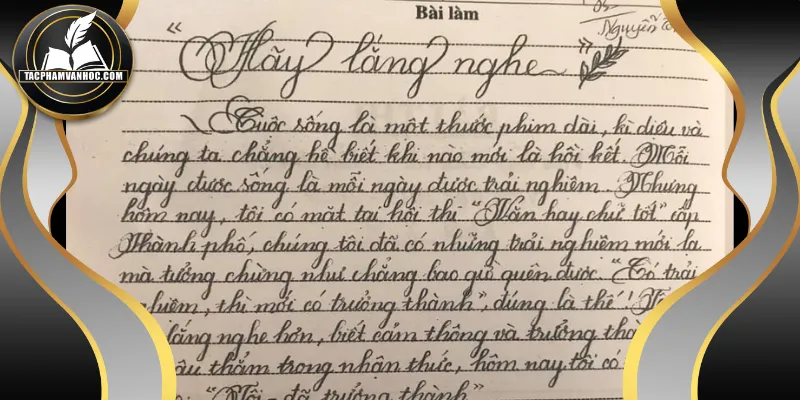 TACPHAMVANHOC.COM
Bài làm
Nguyễn
“Hãy lắng nghe”
Cuộc sống là một thước phim dài, kì diệu và
chúng ta chẳng hề biết khi nào mới là hồi kết. Mỗi
ngày được sống là mỗi ngày được trải nghiệm. Nhưng
hôm nay, tôi có mặt tại hội thi “Văn hay chữ tốt” cấp
Thành phố, chúng tôi đã có những trải nghiệm mới lạ
mà tưởng chừng như chẳng bao giờ quên được. “Có trải
nghiệm, thì mới có trưởng thành”, đúng là thế!
lắng nghe hơn, biết cảm thông và trưởng
thẳm trong nhận thức, hôm nay tôi có
“Tôi - đã trưởng thành”